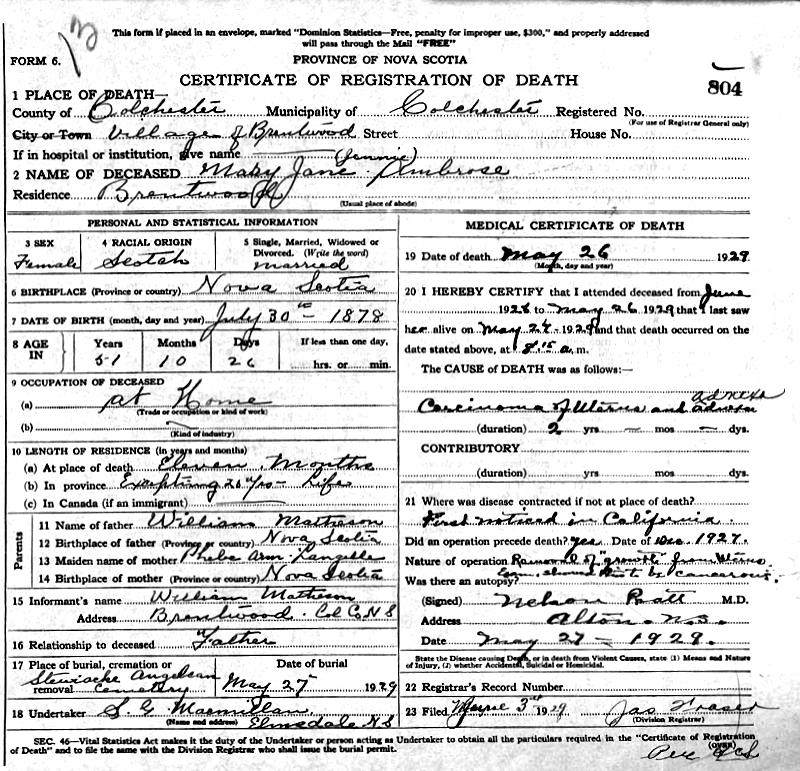 This form if placed in an envelope, marked "Dominion Statistics—Free, penalty for improper use, $300," and properly addressed
will pass through the Mail "FREE"
FORM 6.
PROVINCE OF NOVA SCOTIA
CERTIFICATE OF REGISTRATION OF DEATH
804
1 PLACE OF DEATH—
County of Colchester Municipality of Colchester Registered No.
(For use of Registrar General only)
City or Town Village of Brentwood Street House No.
If in hospital or institution, give name (Jennie)
2 NAME OF DECEASED Mary Jane Ambrose
Residence Brentwood
(Usual place of abode)
PERSONAL AND STATISTICAL INFORMATION
3 SEX 4 RACIAL ORIGIN 5 Single, Married, Widowed or
Divorced. (Write the word)
Female Scotch married
6 BIRTHPLACE (Province or country) Nova Scotia
7 DATE OF BIRTH (month, day and year) July 30th - 1878
8 AGE IN Years Months Days If less than one day,
51 10 26 hrs. or min.
9 OCCUPATION OF DECEASED
(a) at Home
(Trade or occupation or kind of work)
(b)
(Kind of industry)
10 LENGTH OF RESIDENCE (in years and months)
(a) At place of death Eleven Months
(b) In province Excepting 20 yrs - Life
(c) In Canada (if an immigrant)
Parents
11 Name of father William Matheson
12 Birthplace of father (Province or country) Nova Scotia
13 Maiden name of mother Phebe Ann Langille
14 Birthplace of mother (Province or country) Nova Scotia
15 Informant's name William Matheson
Address Brentwood Col Co N S
16 Relationship to deceased Father
17 Place of burial, cremation or removal Date of burial
Stewiacke Cemetery May 27 1929
18 Undertaker S. G. Macmillan
(Name and address) Elmsdale N S
MEDICAL CERTIFICATE OF DEATH
19 Date of death May 26 1929
(Month, day and year)
20 I HEREBY CERTIFY that I attended deceased from June
1928 to May 26 1929 that I last saw
her alive on May 24 - 1929 and that death occurred on
date stated above, at 8.15 a.m.
The CAUSE of DEATH was as follows:—
adnexa
Carcinoma of Uterus and adnexa
(duration) 2 yrs — mos — dys.
CONTRIBUTORY
(duration) yrs mos dys.
21 Where was disease contracted if not at place of death?
First noticed in California.
Did an operation precede death? yes. Date of Dec. 1927.
Nature of operation Removal of "growth" from Uterus
Exam. showed it to be cancerous.
Was there an autopsy?
(Signed) Nelson Pratt M.D.
Address Alton N.S.
Date May 27 - 1929.
State the Disease causing Death, or in death from Violent Causes, state (1) Means and Nature
of Injury, (2) whether Accidental, Suicidal or Homicidal.
22 Registrar's Record Number
23 Filed June 3rd 1929 Jas Fraser
(Division Registrar)
SEC. 46—Vital Statistics Act makes it the duty of the Undertaker or person acting as Undertaker to obtain all the particulars required in the "Certificate of Registration
of Death" and to file the same with the Division Registrar who shall issue the burial permit.
(OVER)
Per